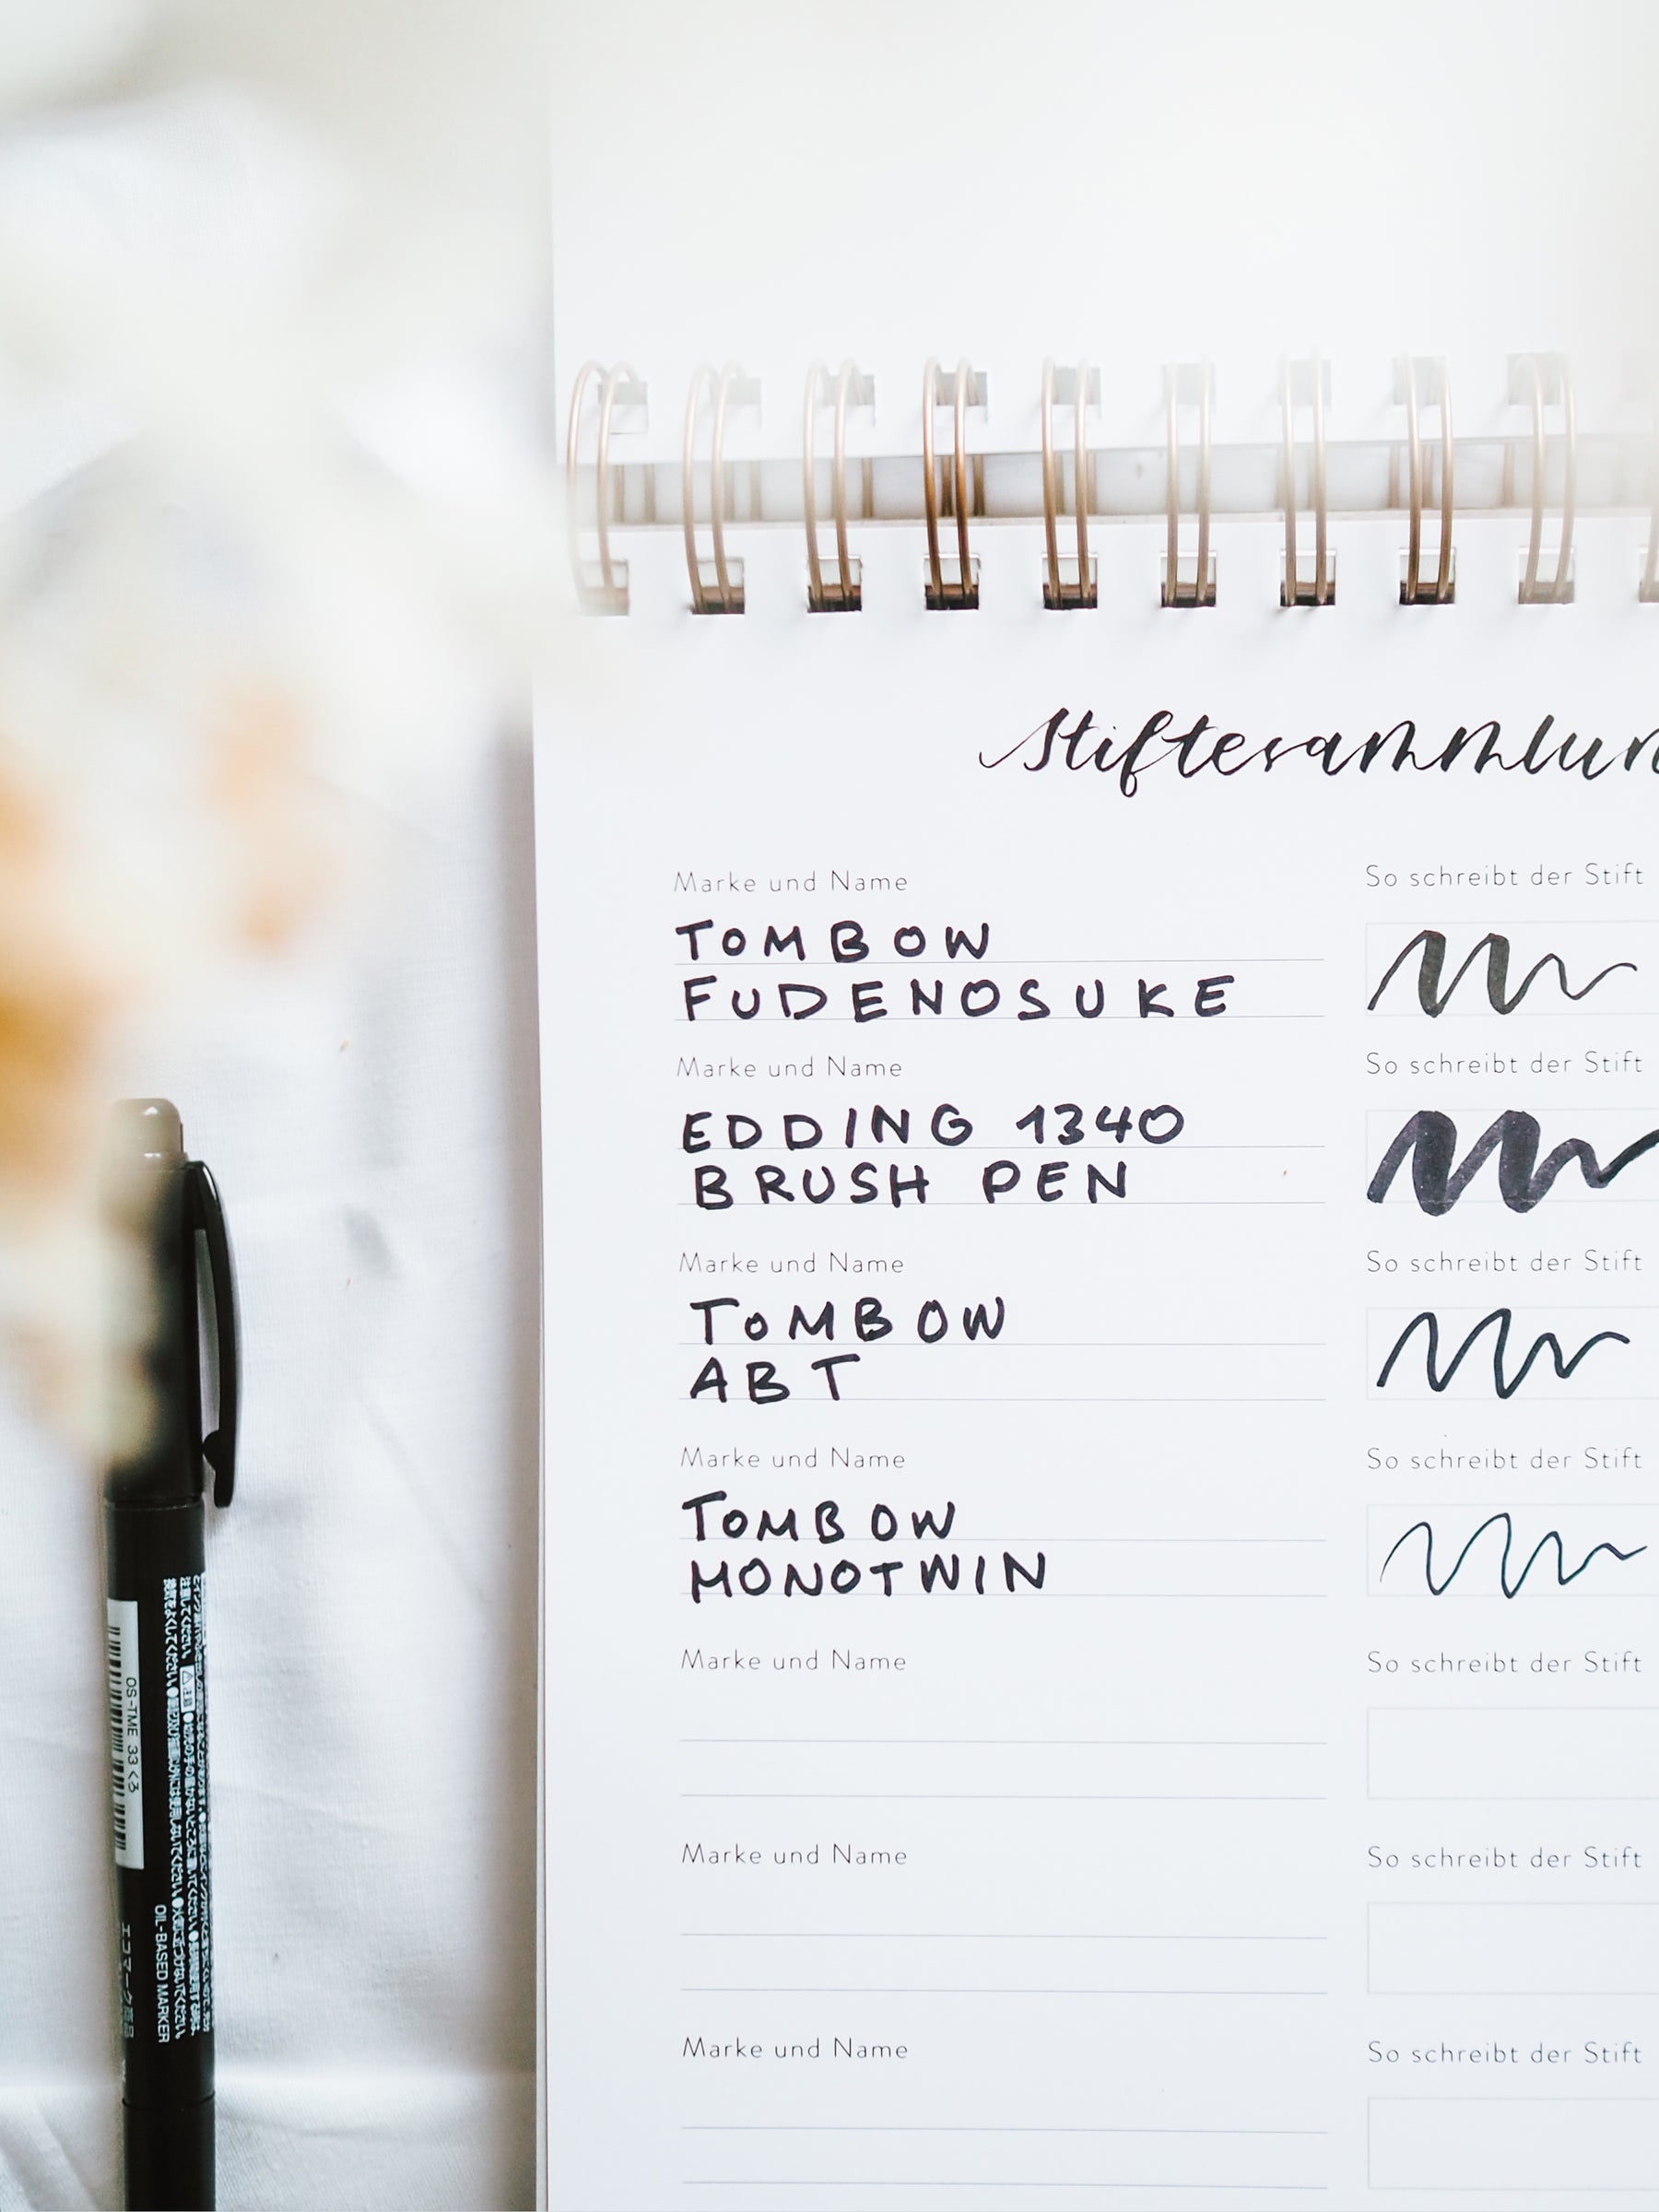 Stiftesammlun
Marke und Name
So schreibt der Stift
TOMBOW
FUDENOSUKE
Marke und Name
So schreibt der Stift
EDDING 1340
BRUSH PEN
Marke und Name
So schreibt der Stift
TOMBOW
ABT
Marke und Name
So schreibt der Stift
TOMBOW
MONOTWIN
Marke und Name
So schreibt der Stift
Marke und Name
So schreibt der Stift
Marke und Name
So schreibt der Stift
OS-TME 33 くろ
OIL-BASED MARKER
エコマーク商品